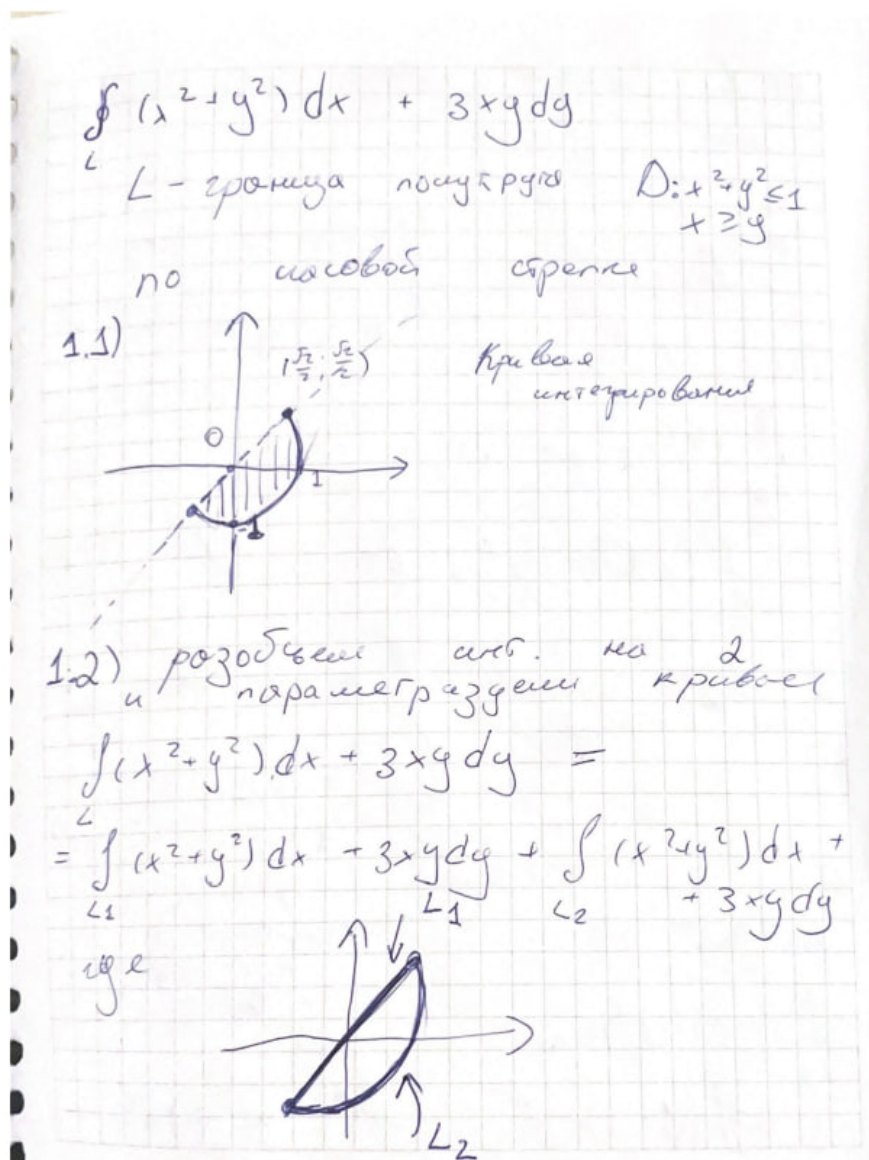 ∮ (x² + y²) dx + 3xydy
L
L - граница полукруга D: x² + y² ≤ 1
x ≥ y
по часовой стрелке
1.1)
(√2/2; √2/2)
Кривая
интегрирования
0
1
-1
1.2) разобьем инт. на 2
и параметризуем кривые
∫(x² + y²) dx + 3xydy =
L
= ∫ (x²+y²) dx + 3xydy + ∫ (x²+y²) dx +
L1 L2 + 3xydy
где
L1
L2